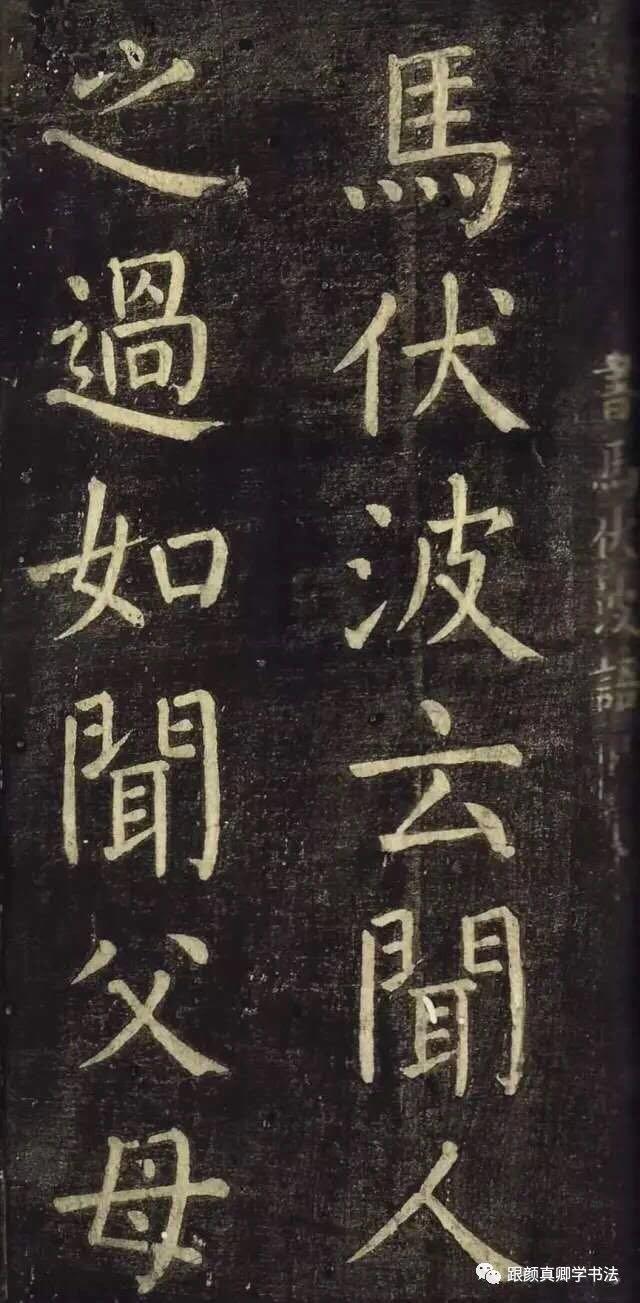 書馬伏波語
馬伏波云聞人
之過如聞父母
跟颜真卿学书法